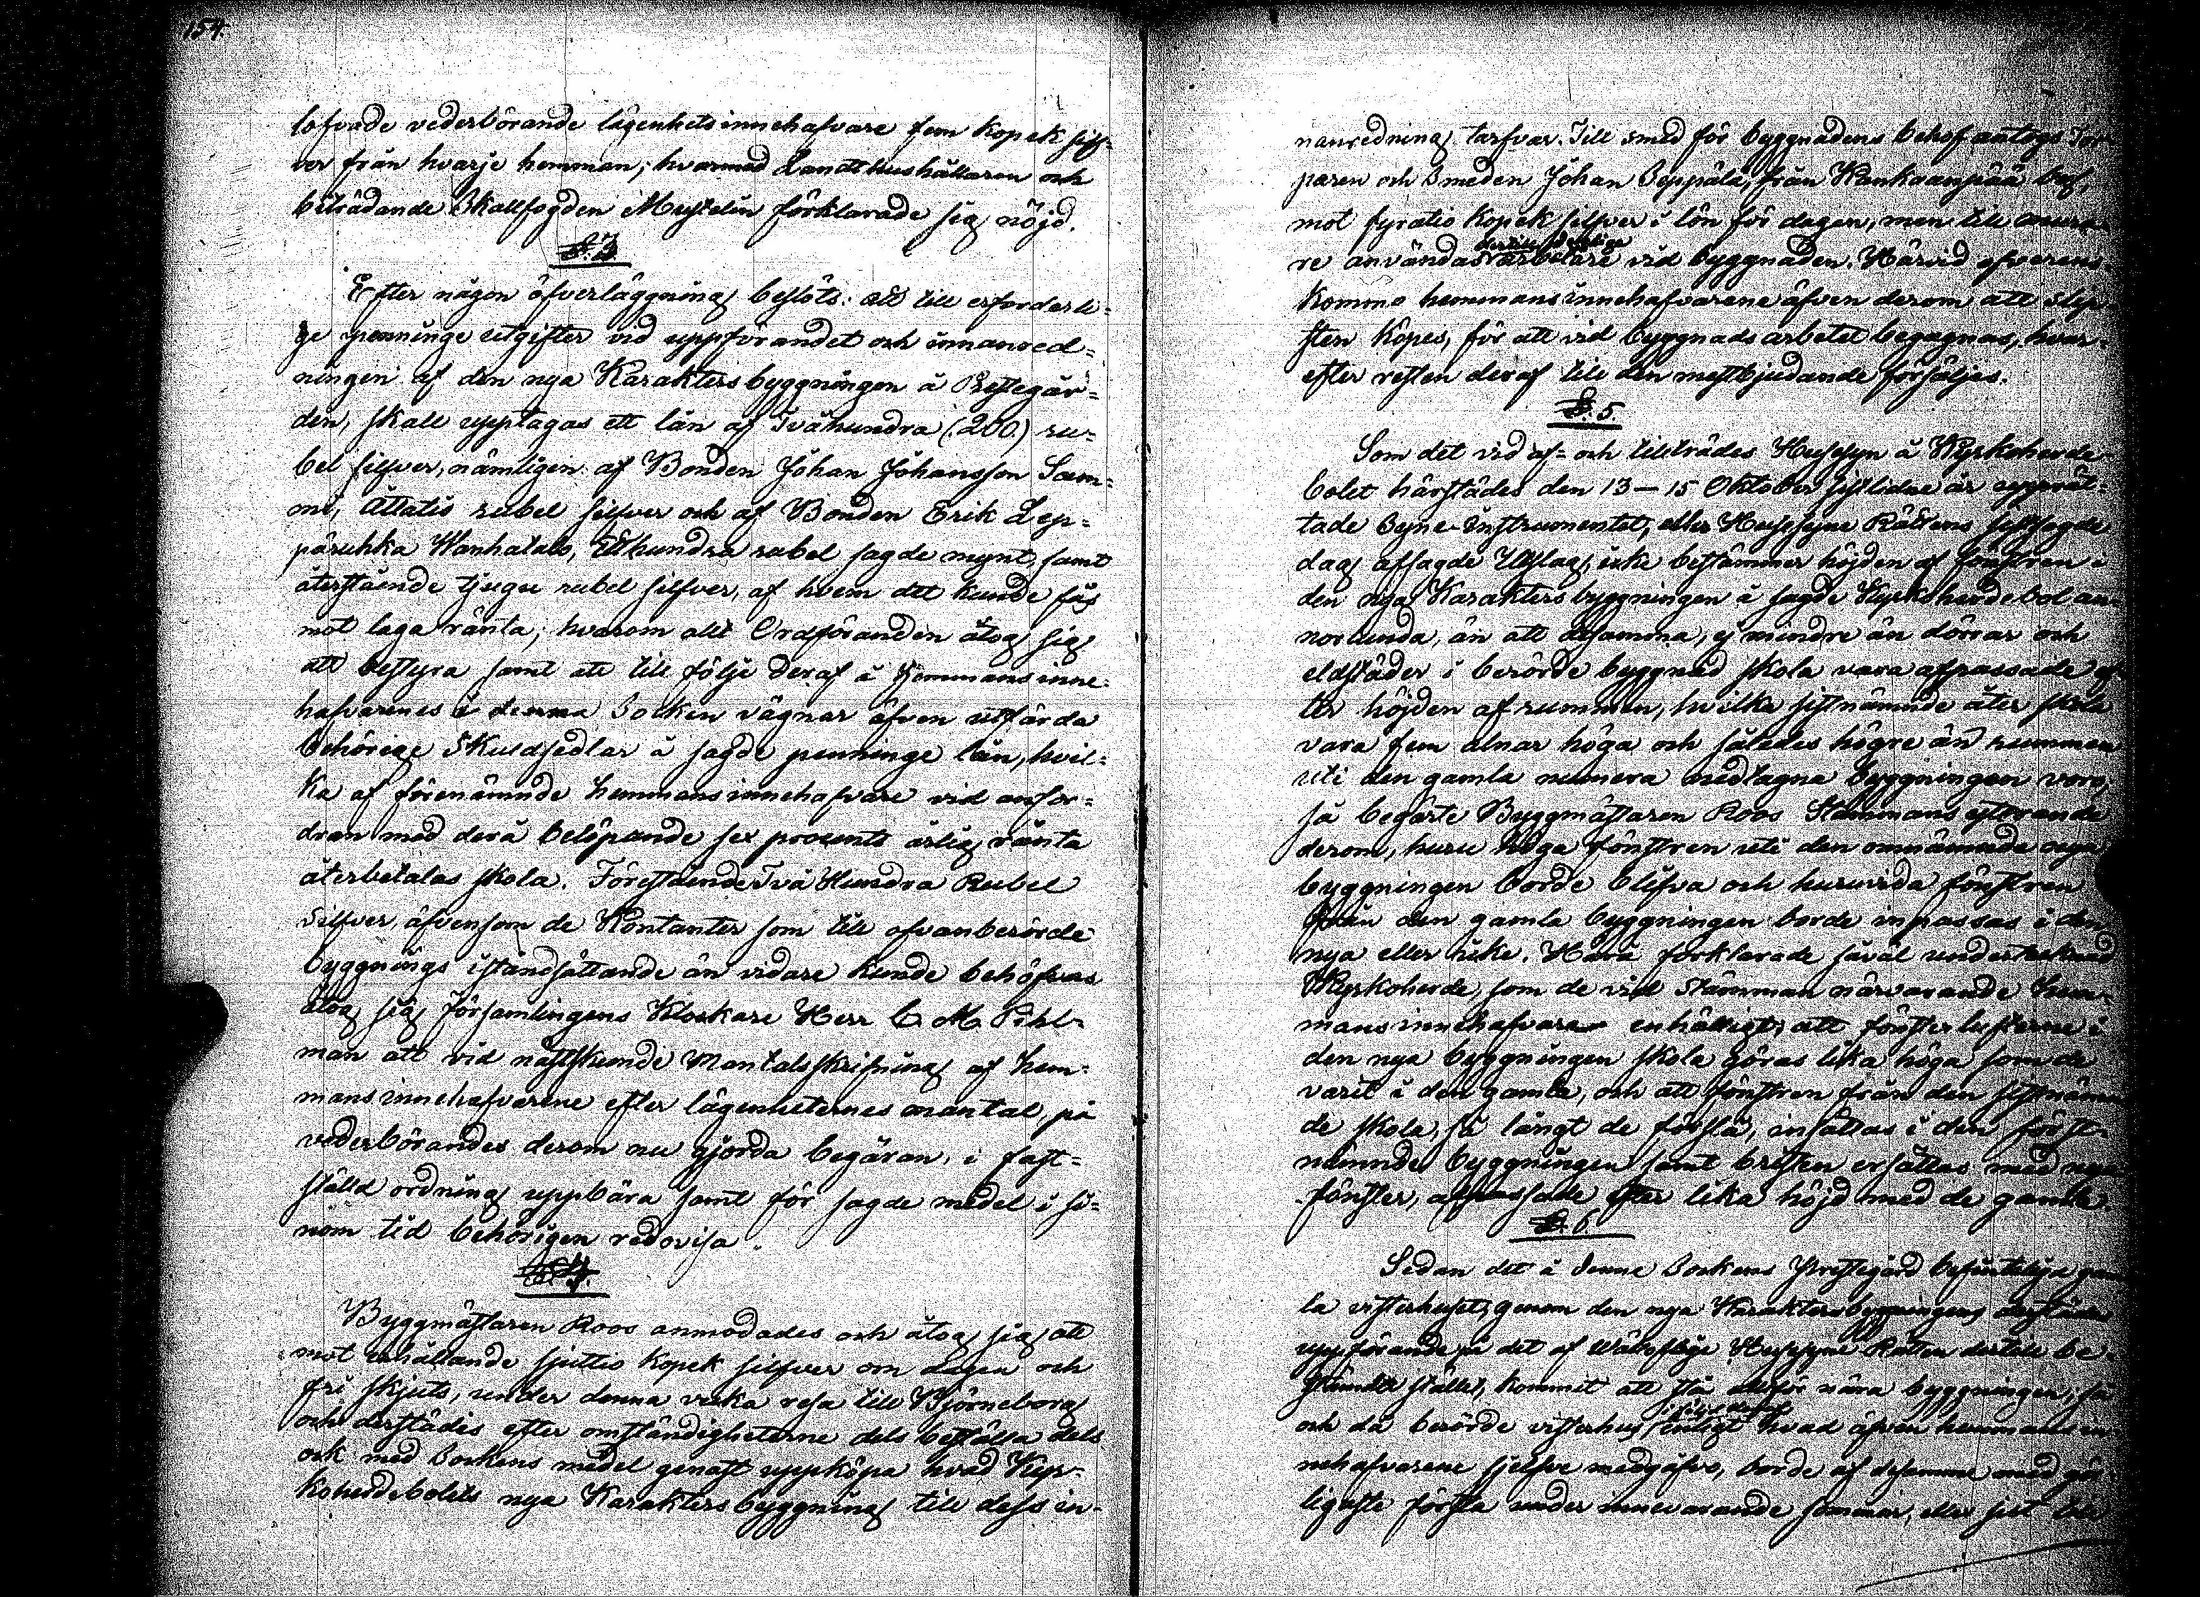 154.
lofvade vederbörande lägenhetsinnehafvare fem kopek silf-
ver från hvarje hemman; hvarmed Landthushållaren och
biträdande Skallfogden Mustelin förklarade sig nöjd.
§. 3.
Efter någon öfverläggning beslöts: att till erforderli-
ge penninge utgifter vid uppförandet och innanred-
ningen af den nya Karaktersbyggningen å Prestegår-
den, skall upptagas ett lån af Tvåhundra (200) ru-
bel silfver, nämligen af Bonden Johan Johansson Sam-
mi, Åttatio rubel silfver och af Bonden Erik Lep-
päruhka Wanhatalo, Etthundra rubel sagde mynt, samt
återstående tjugu rubel silfver, af hvem det kunde fås
mot laga ränta; hvarom allt Ordföranden åtog sig
att bestyra samt att till följe deraf å Hemmansinne-
hafvarenes i denna Socken vägnar äfven utfärda
behörige Skuldsedlar å sagde penninge lån, hvil-
ka af förenämnde hemmansinnehafvare vid anfor-
dran med derå belöpande sex procents årlig ränta
återbetalas skola. Förestående Två Hundra Rubel
Silfver äfvensom de Kontanter som till ofvanberörde
byggnings iståndsättande än vidare kunde behöfvas
åtog sig Församlingens Klockare Herr C. M. Pihl-
man att vid nästskeende Mantalsskrifning af hem-
mansinnehafvarene efter lägenheternes mantal, på
vederbörandes derom nu gjorda begäran, i fast-
ställd ordning uppbära samt för sagde medel i si-
nom tid behörigen redovisa.
§ 4.
Byggmästaren Roos anmodades och åtog sig att
mot erhållande sjuttio kopek silfver om dagen och
fri skjuts, under denna vecka resa till Björneborg
och derstädes efter omständigheterne dels beställa dels
ock med Sockens medel genast uppköpa hvad Kyr-
koherdebolets nya Karaktersbyggning till dess in-
nanredning tarfvar. Till smed för byggnadens behof antogs Tor-
paren och Smeden Johan Seppälä, från Kankaanpää
mot fyratio kopek silfver i lön för dagen, men till mura-
re användas arbetare vid byggnaden. Härvid öfverens-
kommo hemmansinnehafvarene äfven derom att
sten köpes, för att vid byggnadsarbetet begagnas, hvar-
efter resten deraf till den mestbjudande försäljes.
§. 5.
Som det vid af- och tillträdes Husesyn å Kyrkoherde
bolet härstädes den 13–15 Oktober sistlidne år upprät-
tade Syne-Instrumentet, eller Husesyne Rättens sistsagde
dag afsagde Utslag, icke bestämmer höjden af fönstren i
den nya Karaktersbyggningen å sagde Kyrkoherdebol an-
norlunda, än att desamma, ej mindre än dörrar och
eldstäder i berörde byggnad skola vara afpassade ef-
ter höjden af rummen, hvilka sistnämnde åter skola
vara fem alnar höga och således högre än rummen
uti den gamla numera nedtagna byggningen voro,
så begärte Byggmästaren Roos Stämmans yttrande
derom, huru höga fönstren uti den omnämnda nya
byggningen borde blifva och huruvida fönstren
från den gamla byggningen borde inpassas i den
nya eller icke. Härå förklarade såväl undertecknad
Kyrkoherde, som de vid Stämman närvarande hem-
mansinnehafvare enhälligt, att fönsterlufterne i
den nya byggningen skola göras lika höga som de
varit i den gamla, och att fönstren från den sistnämn-
de skola, så långt de förslå, insättas i den först-
nämnde byggningen samt bristen ersättas med nya
fönster, afpassade efter lika höjd med de gamla.
§. 6.
Sedan det å denne Sockens Prestegård befinteliga gam-
la visterhuset, genom den nya Karaktersbyggningens
uppförande på det af Wällofliga Husesyne Rätten dertill be-
stämda stället, kommit att stå alltför nära byggningen, så
och då berörde visterhus enligt hvad äfven hemmansin-
nehafvarene sjelfve medgåfvo, borde af desamme med gör-
ligaste första under innevarande sommar, eller sist